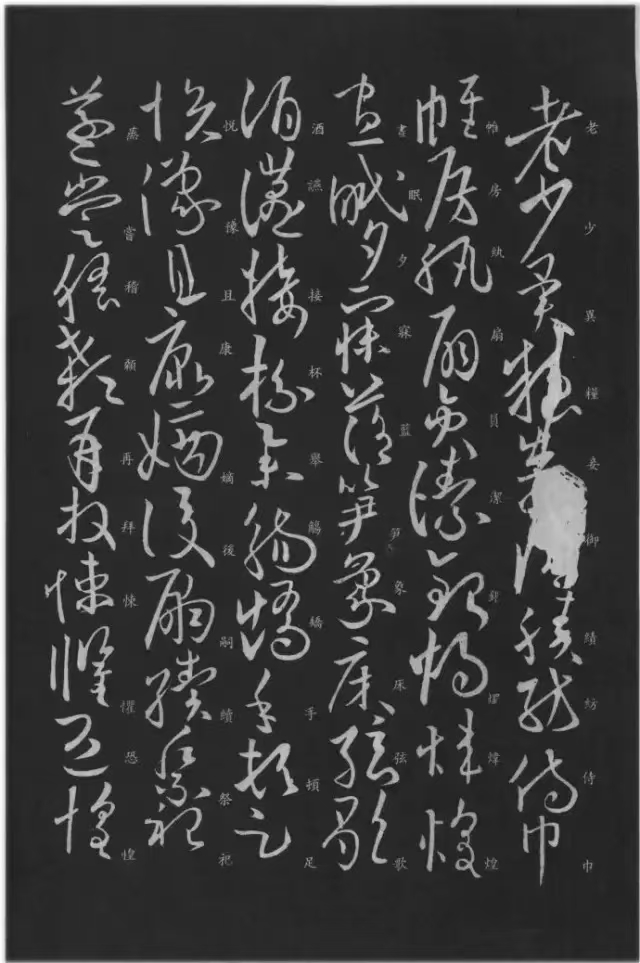 老少異糧妾御績紡侍巾
帷房紈扇員潔銀燭煒煌
晝眠夕寐藍笋象床弦歌
酒讌接杯舉觴矯手頓足
悅豫且康嫡後嗣續祭祀
蒸嘗稽顙再拜悚懼恐惶